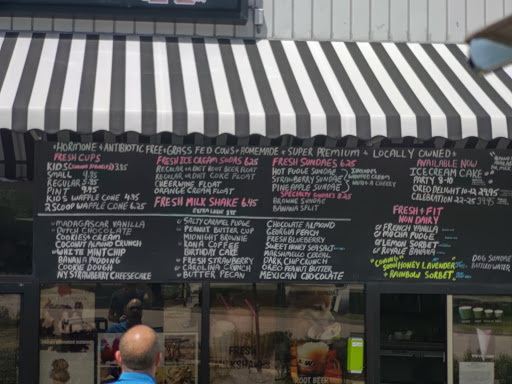 HORMONE + ANTIBIOTIC FREE + GRASS FED COWS • HOMEMADE + SUPER PREMIUM + LOCALLY OWNED
FRESH CUPS
KIDS 3.75
SMALL 4.95
REGULAR 5.85
PINT 9.45
KIDS WAFFLE CONE 4.95
2 SCOOP WAFFLE CONE 6.25
FRESH ICE CREAM SODAS 6.25
REGULAR OR DIET ROOT BEER FLOAT
REGULAR OR DIET COKE FLOAT
CHEERWINE FLOAT
ORANGE CREAM FLOAT
FRESH MILK SHAKE 6.45
FRESH SUNDAES 6.25
HOT FUDGE SUNDAE
STRAWBERRY SUNDAE
PINEAPPLE SUNDAE
INCLUDES
WHIPPED CREAM
NUTS + A CHERRY
SPECIALTY SUNDAES
BROWNIE SUNDAE
BANANA SPLIT
AVAILABLE NOW
ICE CREAM CAKE
PARTY 8-10
OREO DELIGHT
CELEBRATION 22-25
MADAGASCAR VANILLA
DUTCH CHOCOLATE
COOKIES & CREAM
COCONUT ALMOND CRUNCH
WHITE MINT CHIP
BANANA PUDDING
COOKIE DOUGH
NY STRAWBERRY CHEESECAKE
SALTY CARAMEL FUDGE
PEANUT BUTTER CUP
MIDNIGHT BROWNIE
KONA COFFEE
BIRTHDAY CAKE
FRESH STRAWBERRY
CAROLINA CRUNCH
BUTTER PECAN
CHOCOLATE ALMOND
GEORGIA PEACH
FRESH BLUEBERRY
SWEET HONEY
MARSHMALLO CEREAL
DARK CHIP CRUNCH
OREO PEANUT BUTTER
MEXICAN CHOCOLATE
FRESH + FIT
NON DAIRY
FRENCH VANILLA
MOCHA FUDGE
LEMON SORBET
ROYALE BANANA
"COMING SOON" HONEY LAVENDER
+ RAINBOW SORBET
DOG SUNDAE